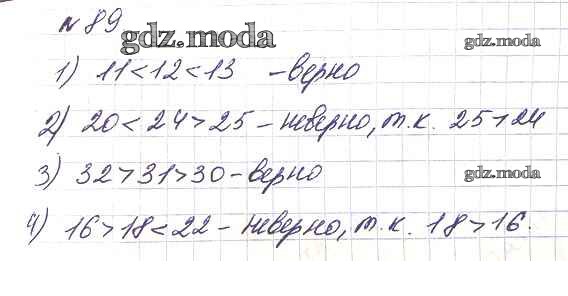 № 89
gdz.moda
gdz.moda
1) 11 < 12 < 13 - верно
2) 20 < 24 > 25 - неверно, т.к. 25 > 24
3) 32 > 31 > 30 - верно
gdz.moda
4) 16 > 18 < 22 - неверно, т.к. 18 > 16.